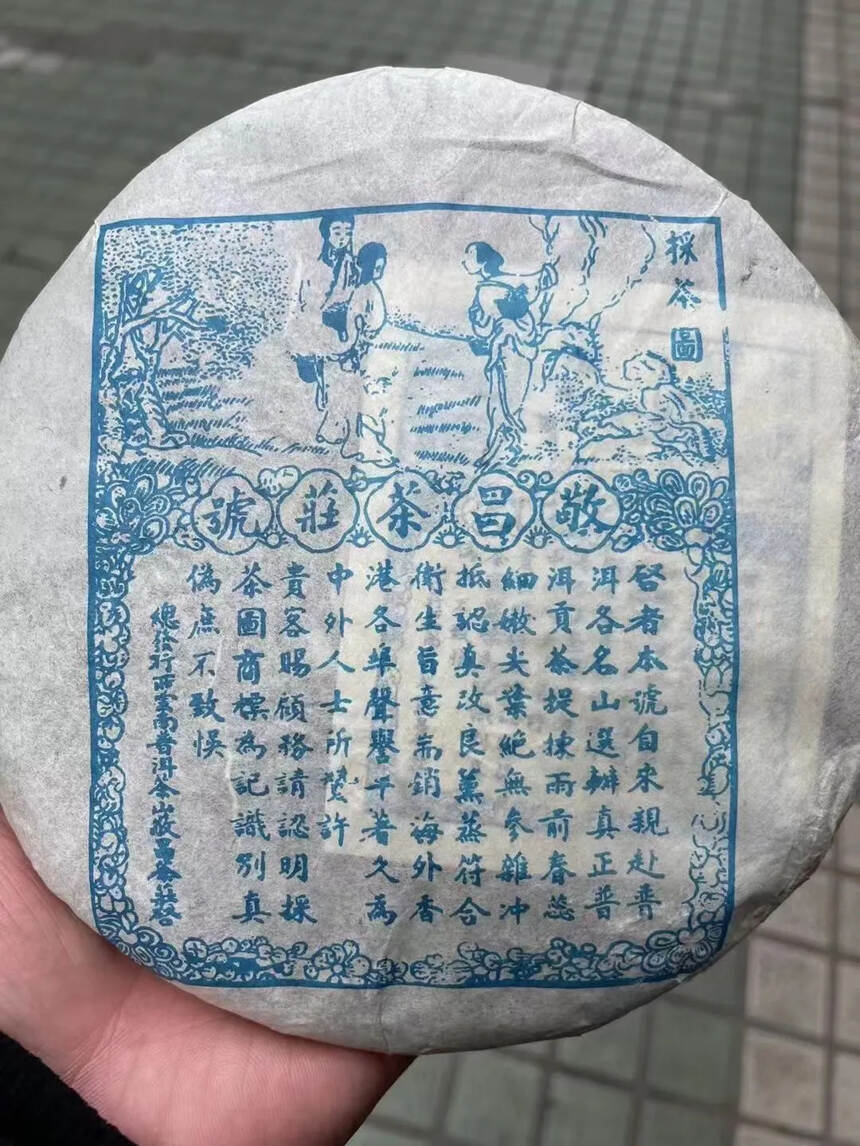 採茶圖
敬昌茶莊號
啓者本號自來親赴普
洱各名山選辦真正普
洱貢茶提揀雨前春蕊
細嫩尖葉絕無參雜冲
抵認真改良薰蒸符合
衛生旨意氣銷海外香
港各埠聲譽千著久為
中外人士所贊許
貴客賜顧務請認明採
茶圖商標為記識别真
偽庶不致悞
總發行所雲南普洱茶山敬昌茶莊啓